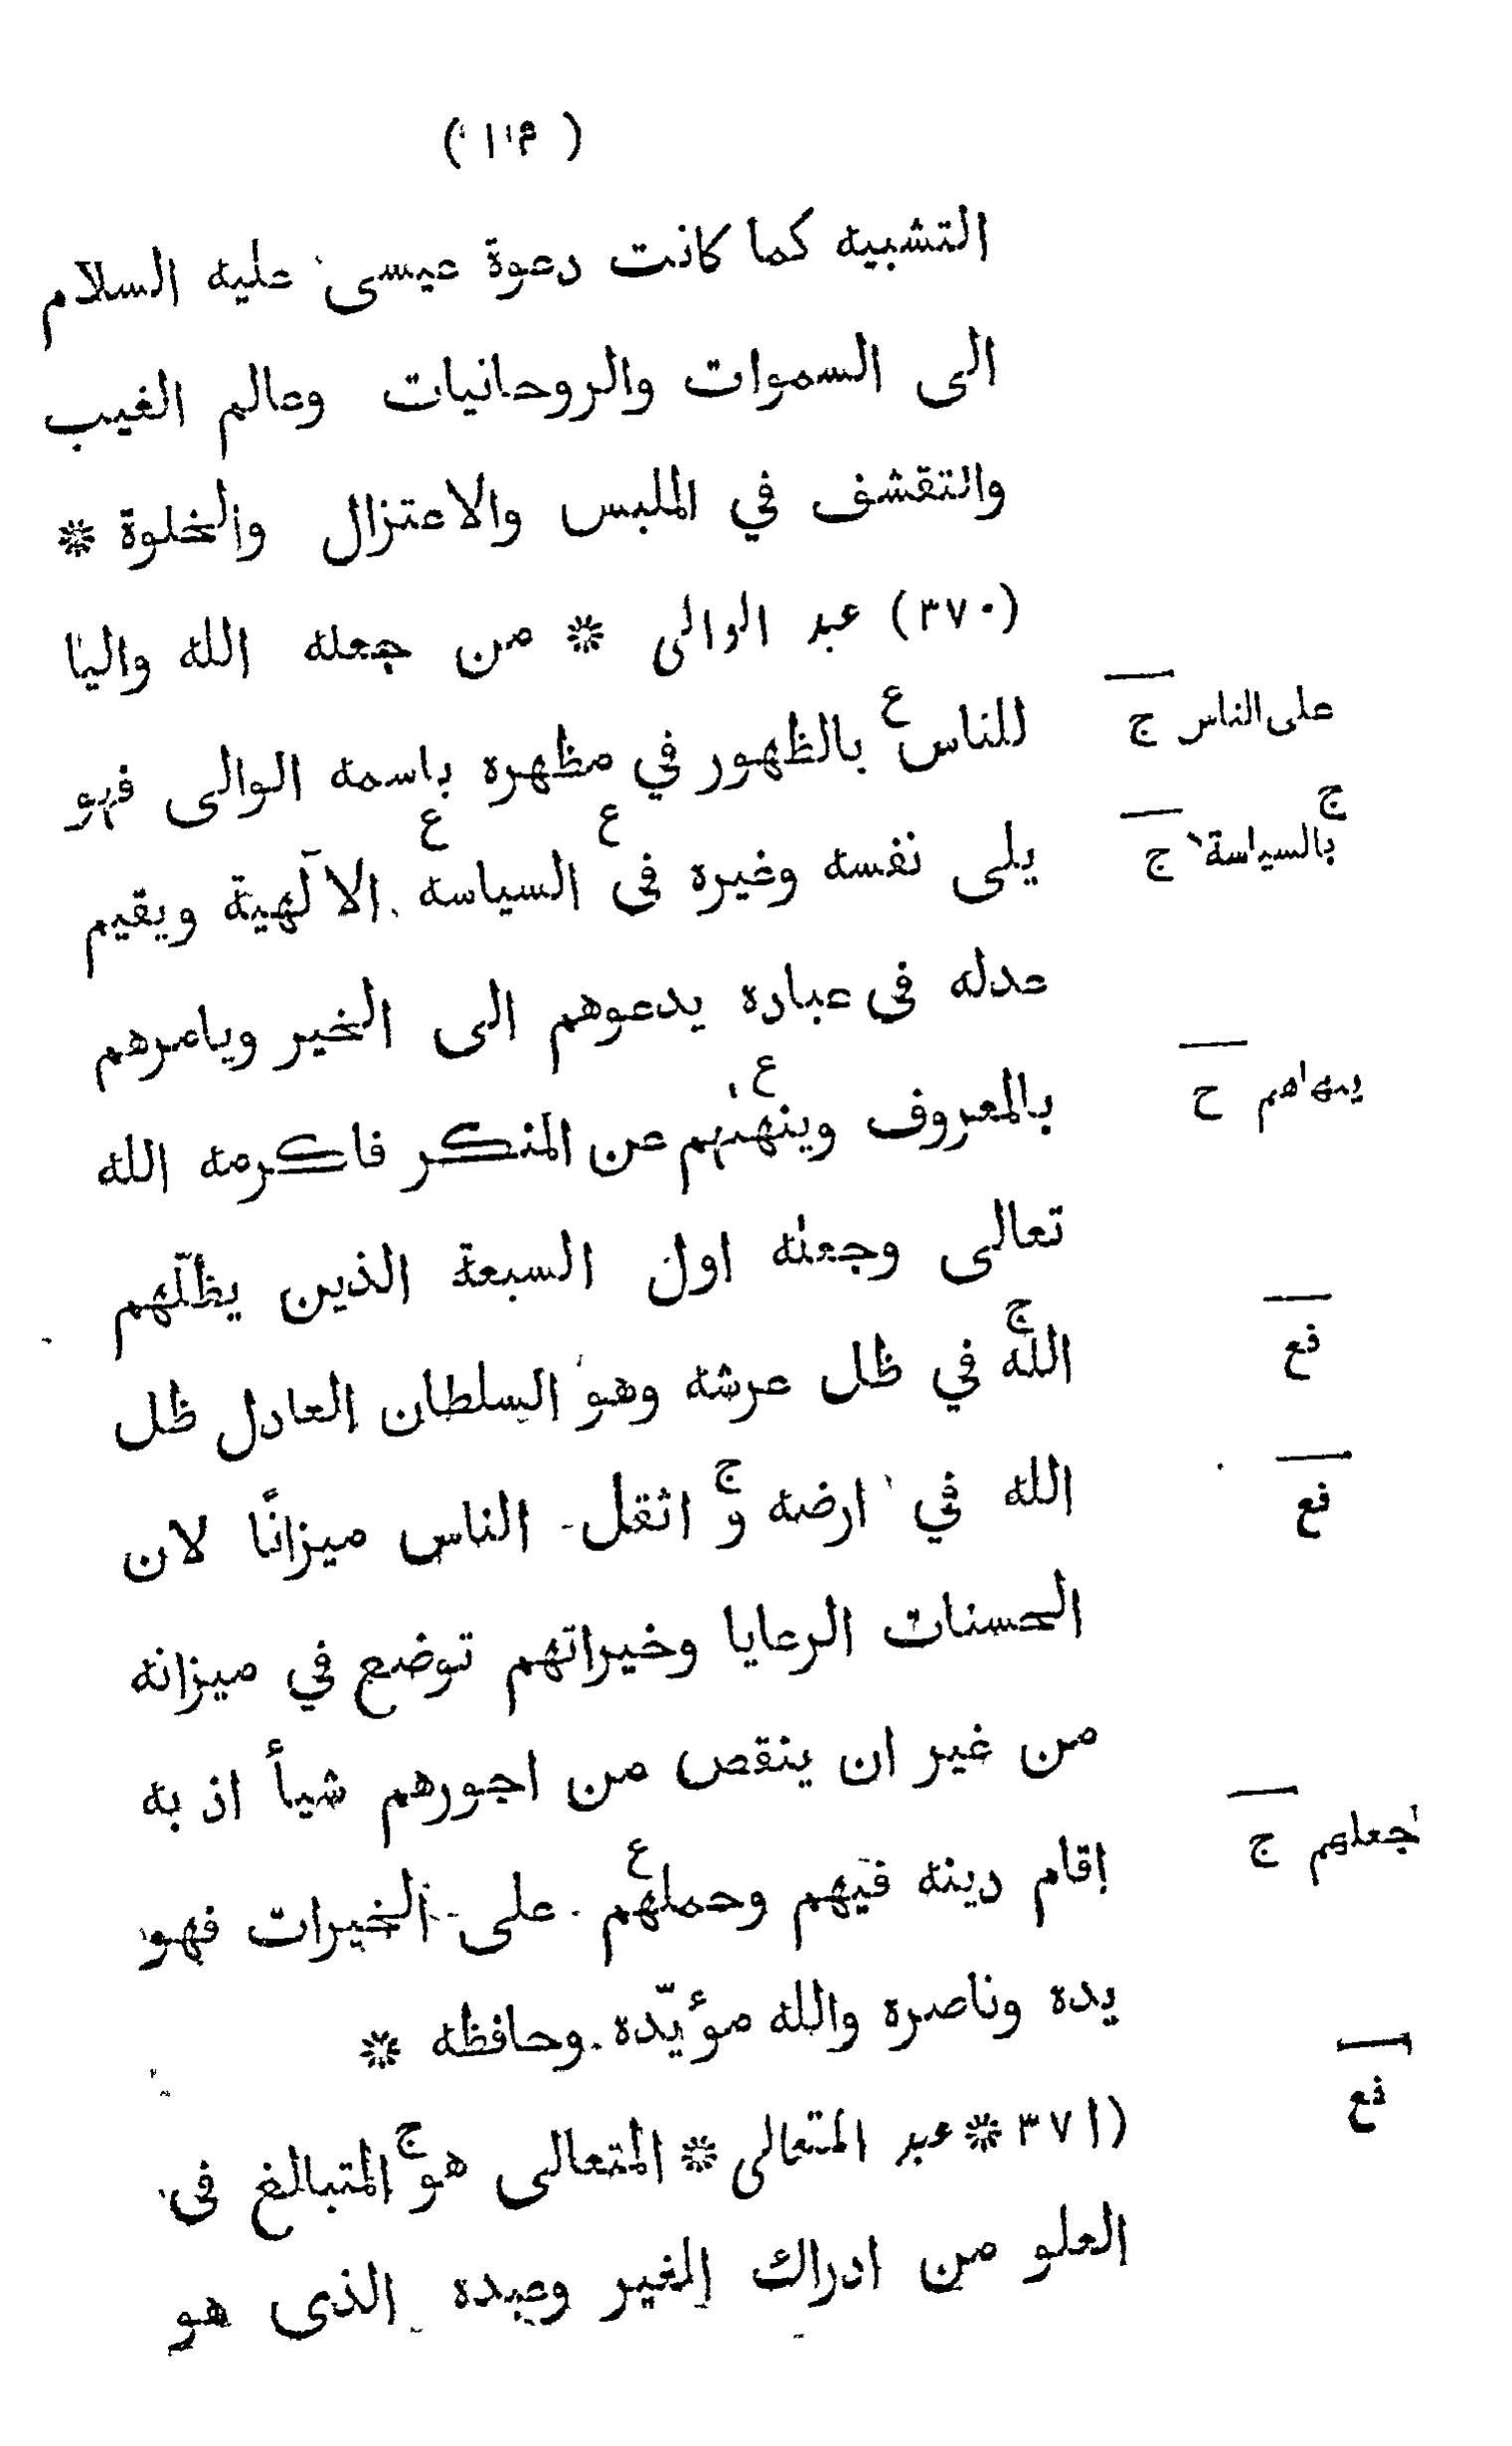 التشبيه كما كانت دعوة عيسى عليه السلام
الى السموات والروحانيات وعالم الغيب
والتقشف في الملبس والاعتزال والخلوة *
(٣٧٠) عبد الوالى * من جعله الله واليا
للناس ع بالظهور في مظهره باسمه الوالى فهو
على الناس ج
يلى نفسه وغيره فى ع السياسه ع الالٓهية ويقيم
ج بالسياسة ج
عدله فى عباده يدعوهم الى الخير ويامرهم
بالمعروف وينهئهم ع عن المنكر فاكرمه الله
ينهاهم ح
تعالى وجعله اول السبعة الذين يظلّهم
الله ج في ظل عرشه وهو السلطان العادل ظل
فع
الله في ارضه و ج اثقل الناس ميزانًا لان
فع
الحسنات الرعايا وخيراتهم توضع في ميزانه
من غير ان ينقص من اجورهم شيأ اذ به
إقام دينه فيهم وحملهم ع على الخيرات فهو
اجعلهم ج
يده وناصره والله مؤيّده وحافظه *
(٣٧١ * عبد المتعالى * المتعالى هو ج المتبالغ فى
فع
العلو من ادراك الغير وعبده الذى هو